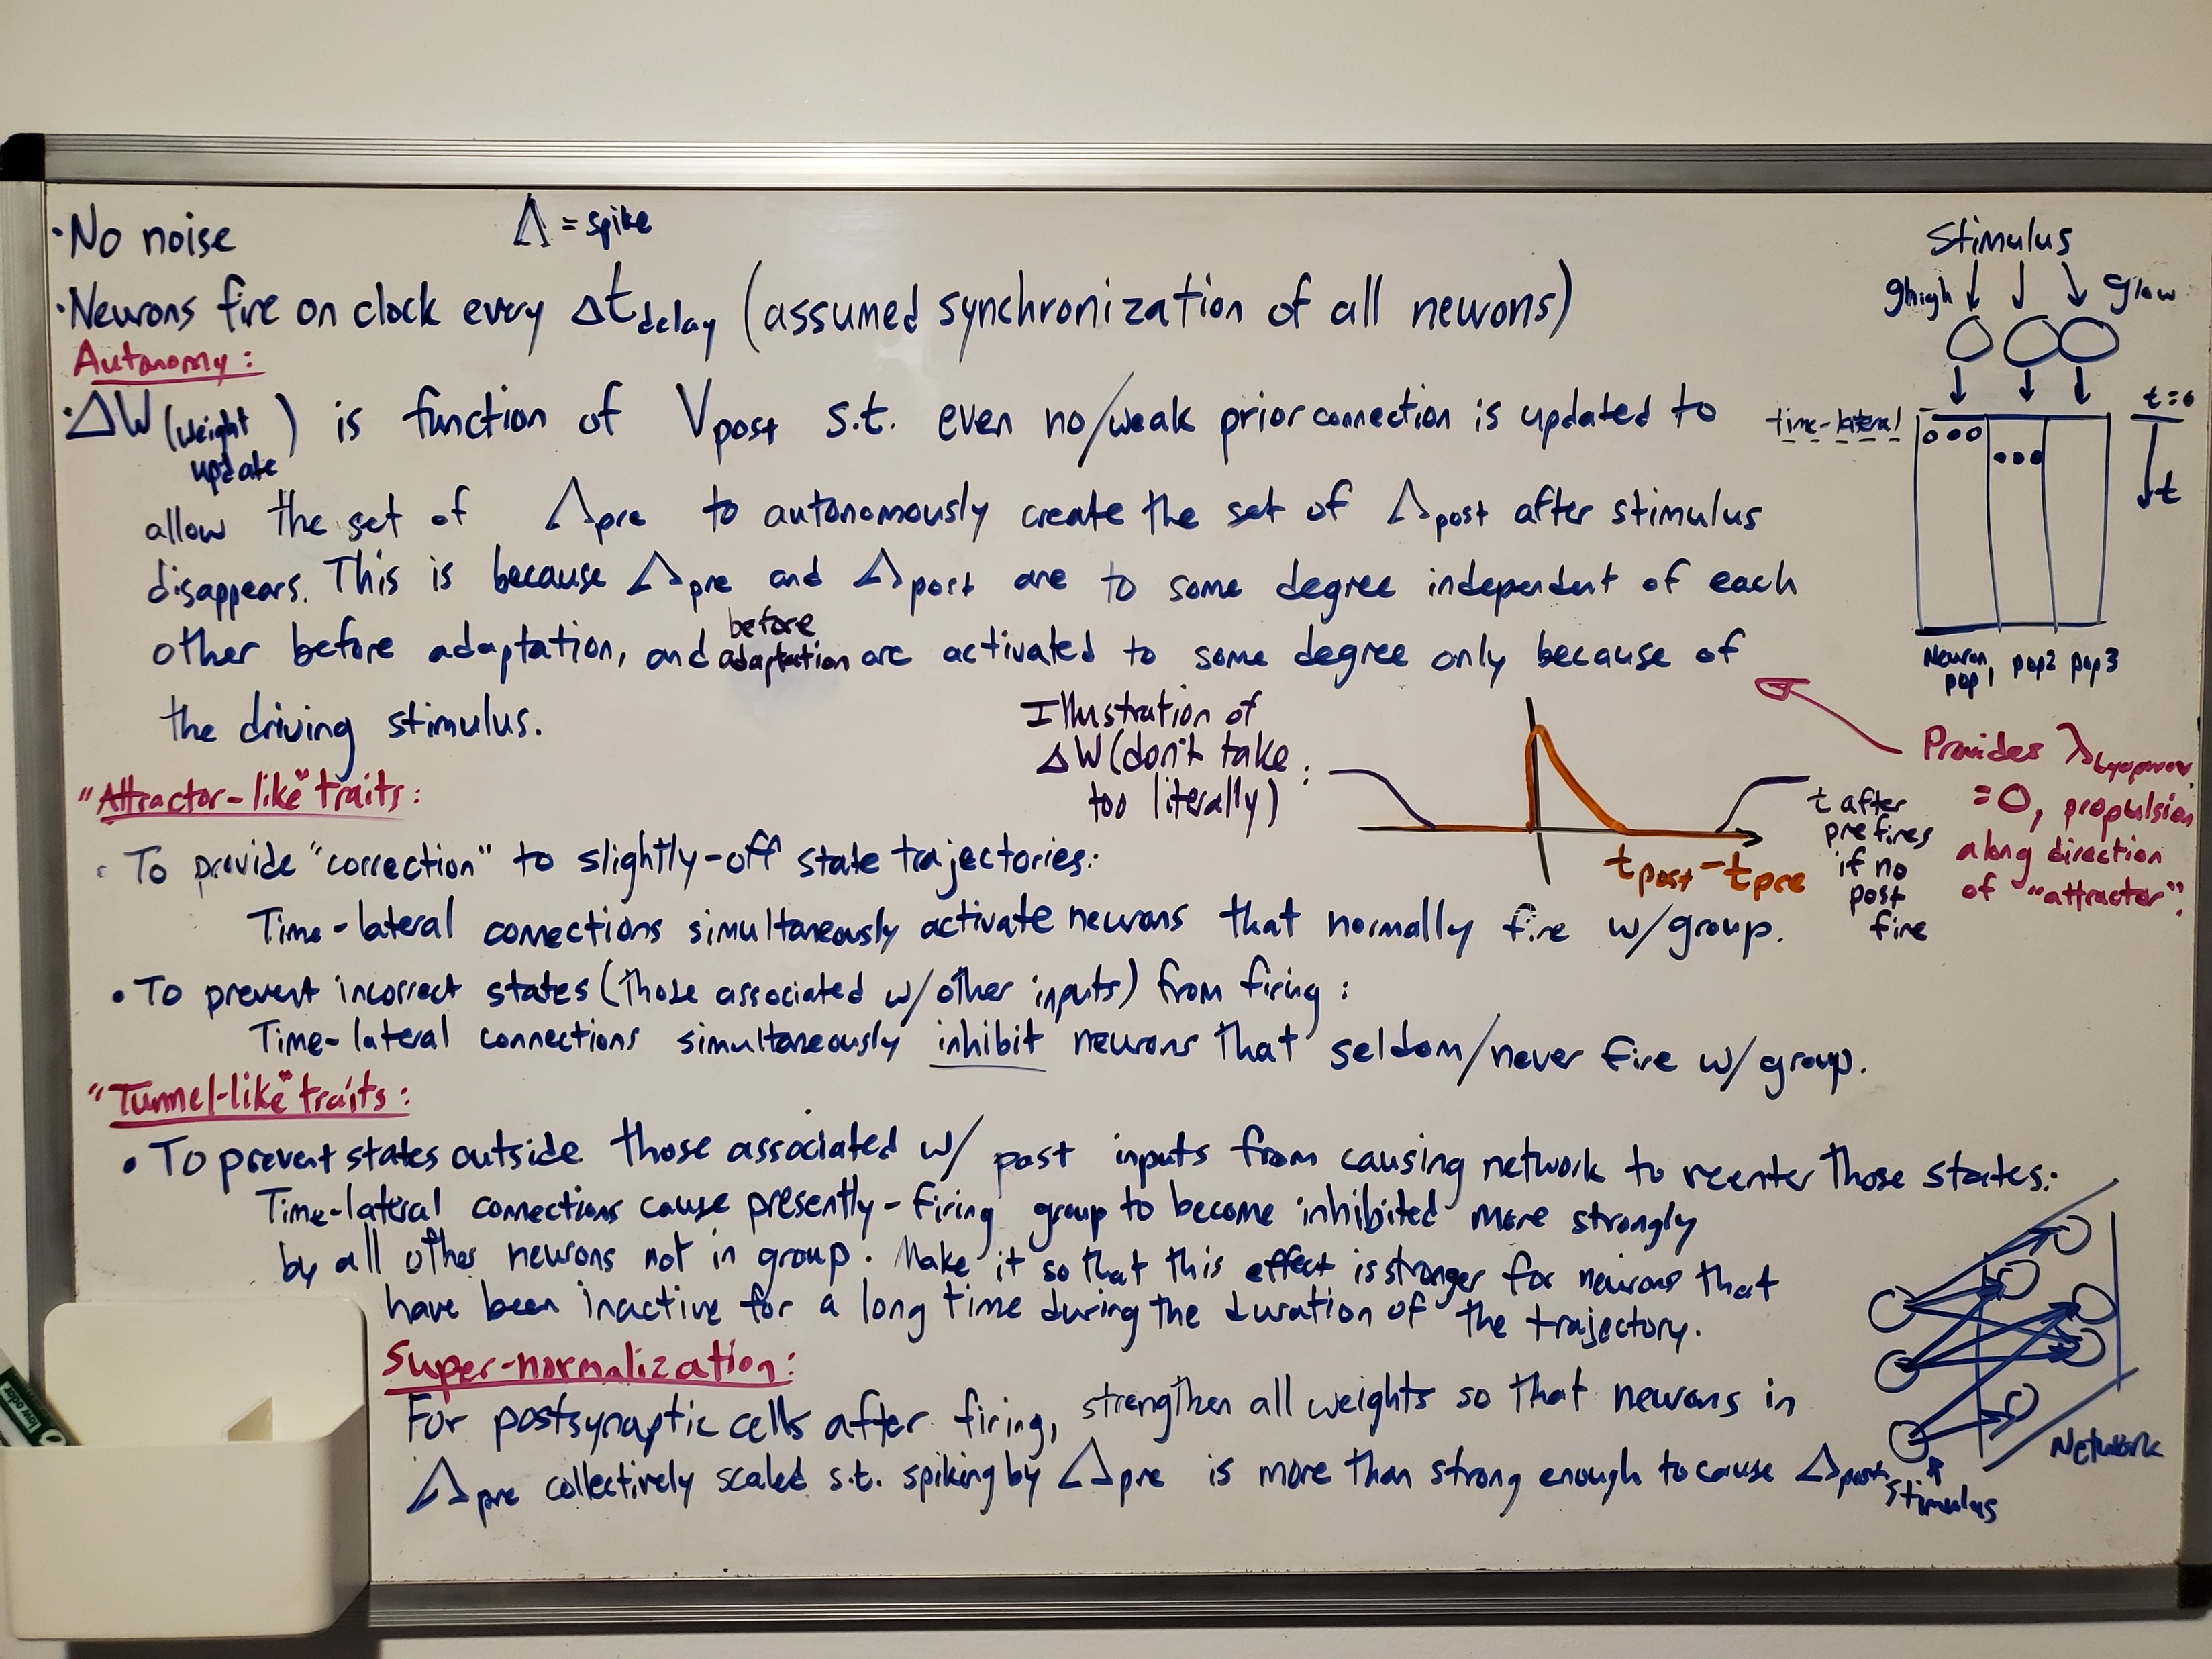 ·No noise
Λ = spike
·Neurons fire on clock every Δt_delay (assumed synchronization of all neurons)
Autonomy:
·ΔW (weight update) is function of V_post s.t. even no/weak prior connection is updated to
allow the set of Λ_pre to autonomously create the set of Λ_post after stimulus
disappears. This is because Λ_pre and Λ_post are to some degree independent of each
other before adaptation, and before adaptation are activated to some degree only because of
the driving stimulus.
Illustration of
ΔW (don't take
too literally) :
t_post - t_pre
t after
pre fires
if no
post
fire
Provides λ_Lyapunov
=0, propulsion
along direction
of "attractor".
"Attractor-like" traits:
· To provide "correction" to slightly-off state trajectories:
Time-lateral connections simultaneously activate neurons that normally fire w/group.
• To prevent incorrect states (those associated w/other inputs) from firing:
Time-lateral connections simultaneously inhibit neurons that seldom/never fire w/group.
"Tunnel-like" traits:
• To prevent states outside those associated w/ past inputs from causing network to reenter those states:
Time-lateral connections cause presently-firing group to become inhibited more strongly
by all other neurons not in group. Make it so that this effect is stronger for neurons that
have been inactive for a long time during the duration of the trajectory.
Super-normalization:
For postsynaptic cells after firing, strengthen all weights so that neurons in
Λ_pre collectively scaled s.t. spiking by Λ_pre is more than strong enough to cause Λ_post.
Stimulus
g_high g_low
time-lateral
t=0
t
Neuron pop 1, pop2 pop3
Network
Stimulus
low odor